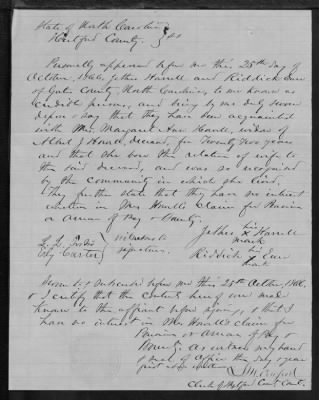 State of North Carolina }
Hertford County. } ss
Personally appeared before me this 25th day of
October, 1866, Jethro Harrell and Riddick Eure
of Gates County, North Carolina, to me known as
credible persons, and being by me duly sworn
depose & say that they have been acquainted
with Mrs. Margaret Ann Howell, widow of
Albert J Howell, deceased, for Twenty two years
and that she bore the relation of wife to
the said deceased, and was so recognized
by the community in which she lived.
They further state that they have no interest
whatever in Mrs Howell's claim for Pension
or arrears of Pay & Bounty.
Jethro his x mark Harrell
Riddick his x mark Eure
witnesses to
signature.
Carter
Sworn to & subscribed before me this 25th October, 1866.
& I certify that the contents hereof were made
known to the affiant before signing, & that I
have no interest in Mrs Howell's claim for
Pension or arrears of Pay &
Bounty. As witness my hand
& seal of office the day & year
first
Clerk of Hertford County Court.